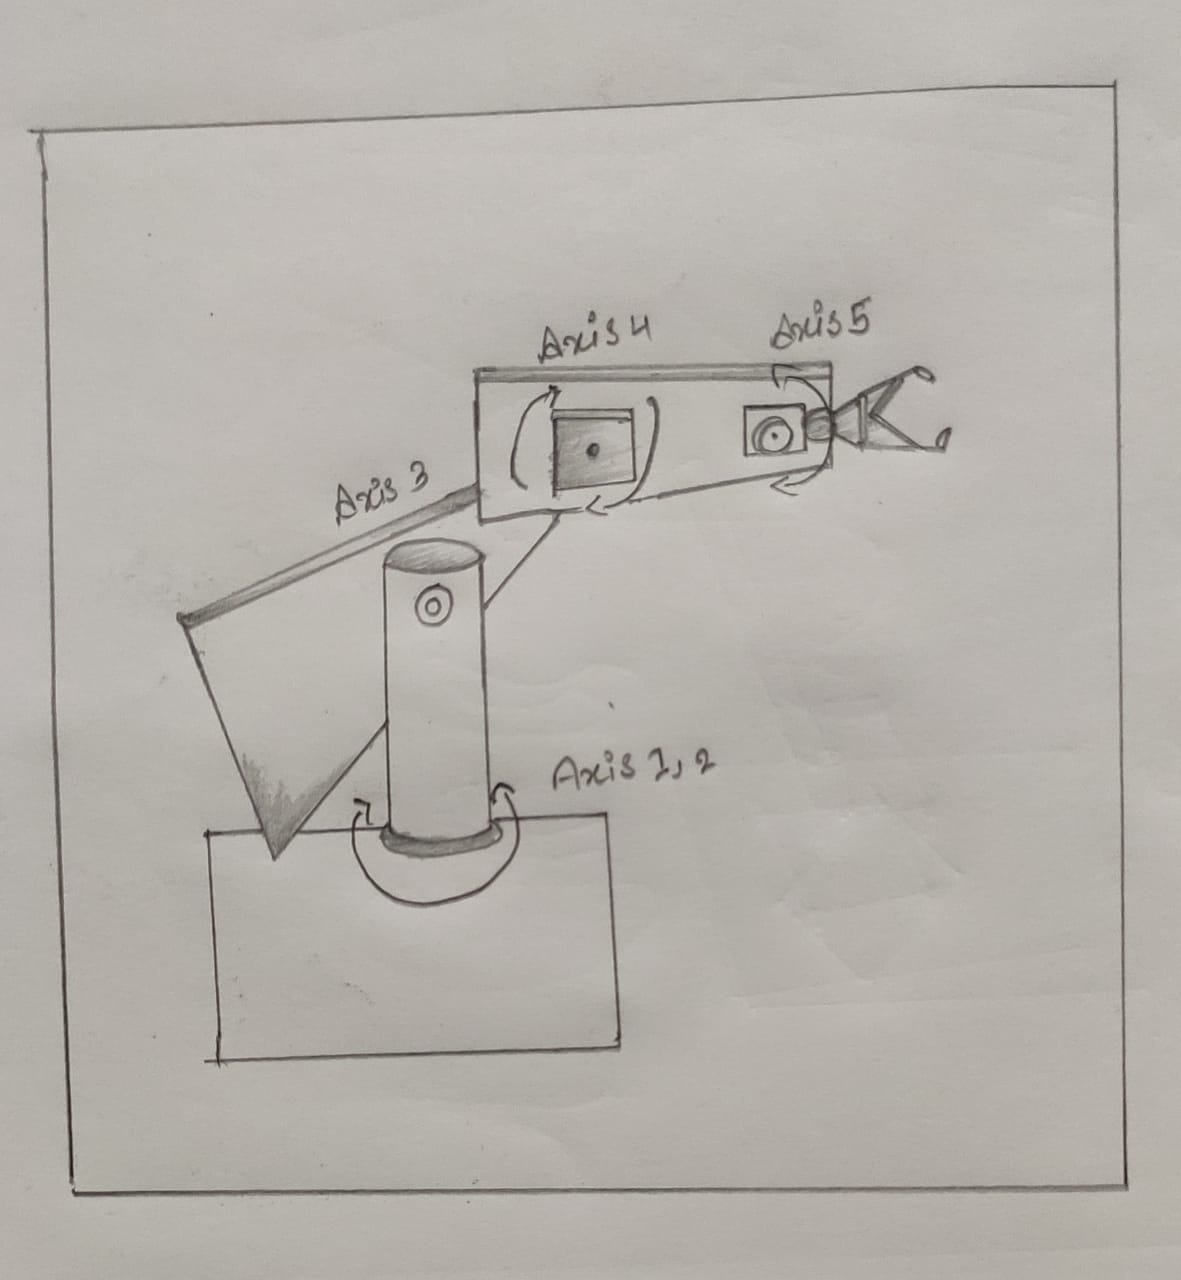 Axis 4
Axis 5
Axis 3
Axis 1, 2